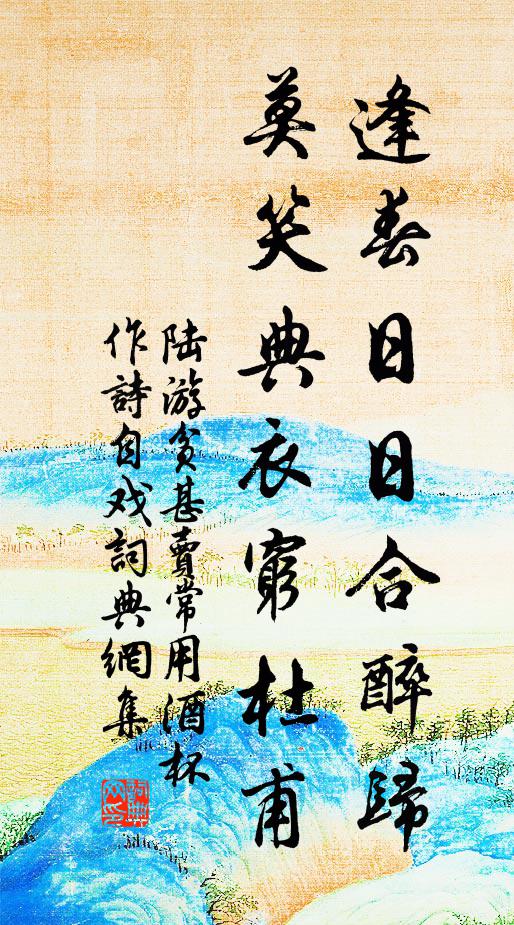 逢春日日合醉歸
莫笑典衣窮杜甫
陆游貧甚賣常用酒杯
作詩自戏詞典網集